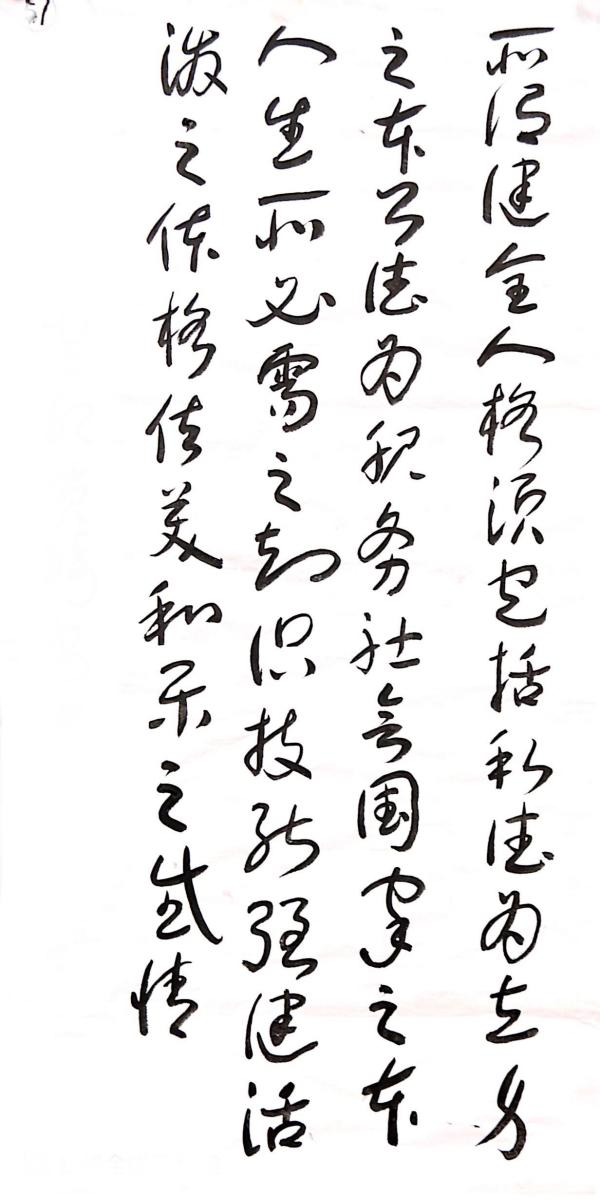 所谓健全人格须包括私德为立身
之本公德为服务社会国家之本
人生所必需之知识技能强健活
泼之体格优美和乐之感情